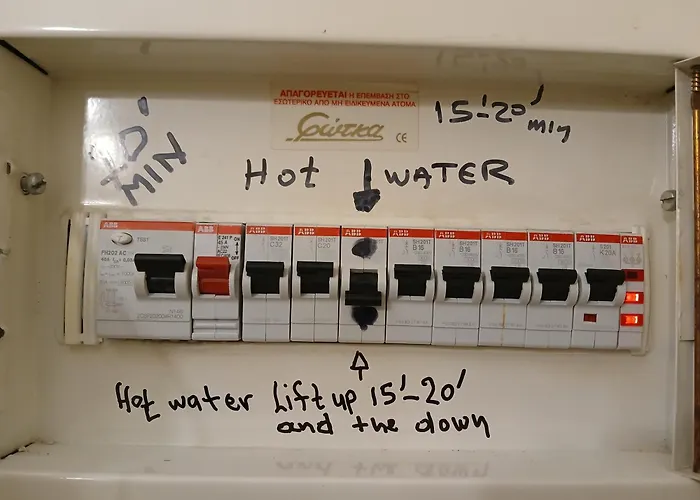 ΑΠΑΓΟΡΕΥΕΤΑΙ Η ΕΠΕΜΒΑΣΗ ΣΤΟ
ΕΣΩΤΕΡΙΚΟ ΑΠΟ ΜΗ ΕΙΔΙΚΕΥΜΕΝΑ ΑΤΟΜΑ
Φώτκα
CE
15'-20'
min
MIN
Hot WATER
ABB
ABB
ABB
ABB
ABB
ABB
ABB
ABB
ABB
ABB
ABB
FH202 AC
ON
OFF
SH201T
C32
SH201T
C20
SH201T
B16
SH201T
B16
SH201T
B16
B16
Hot water Lift up 15'-20'
and the down